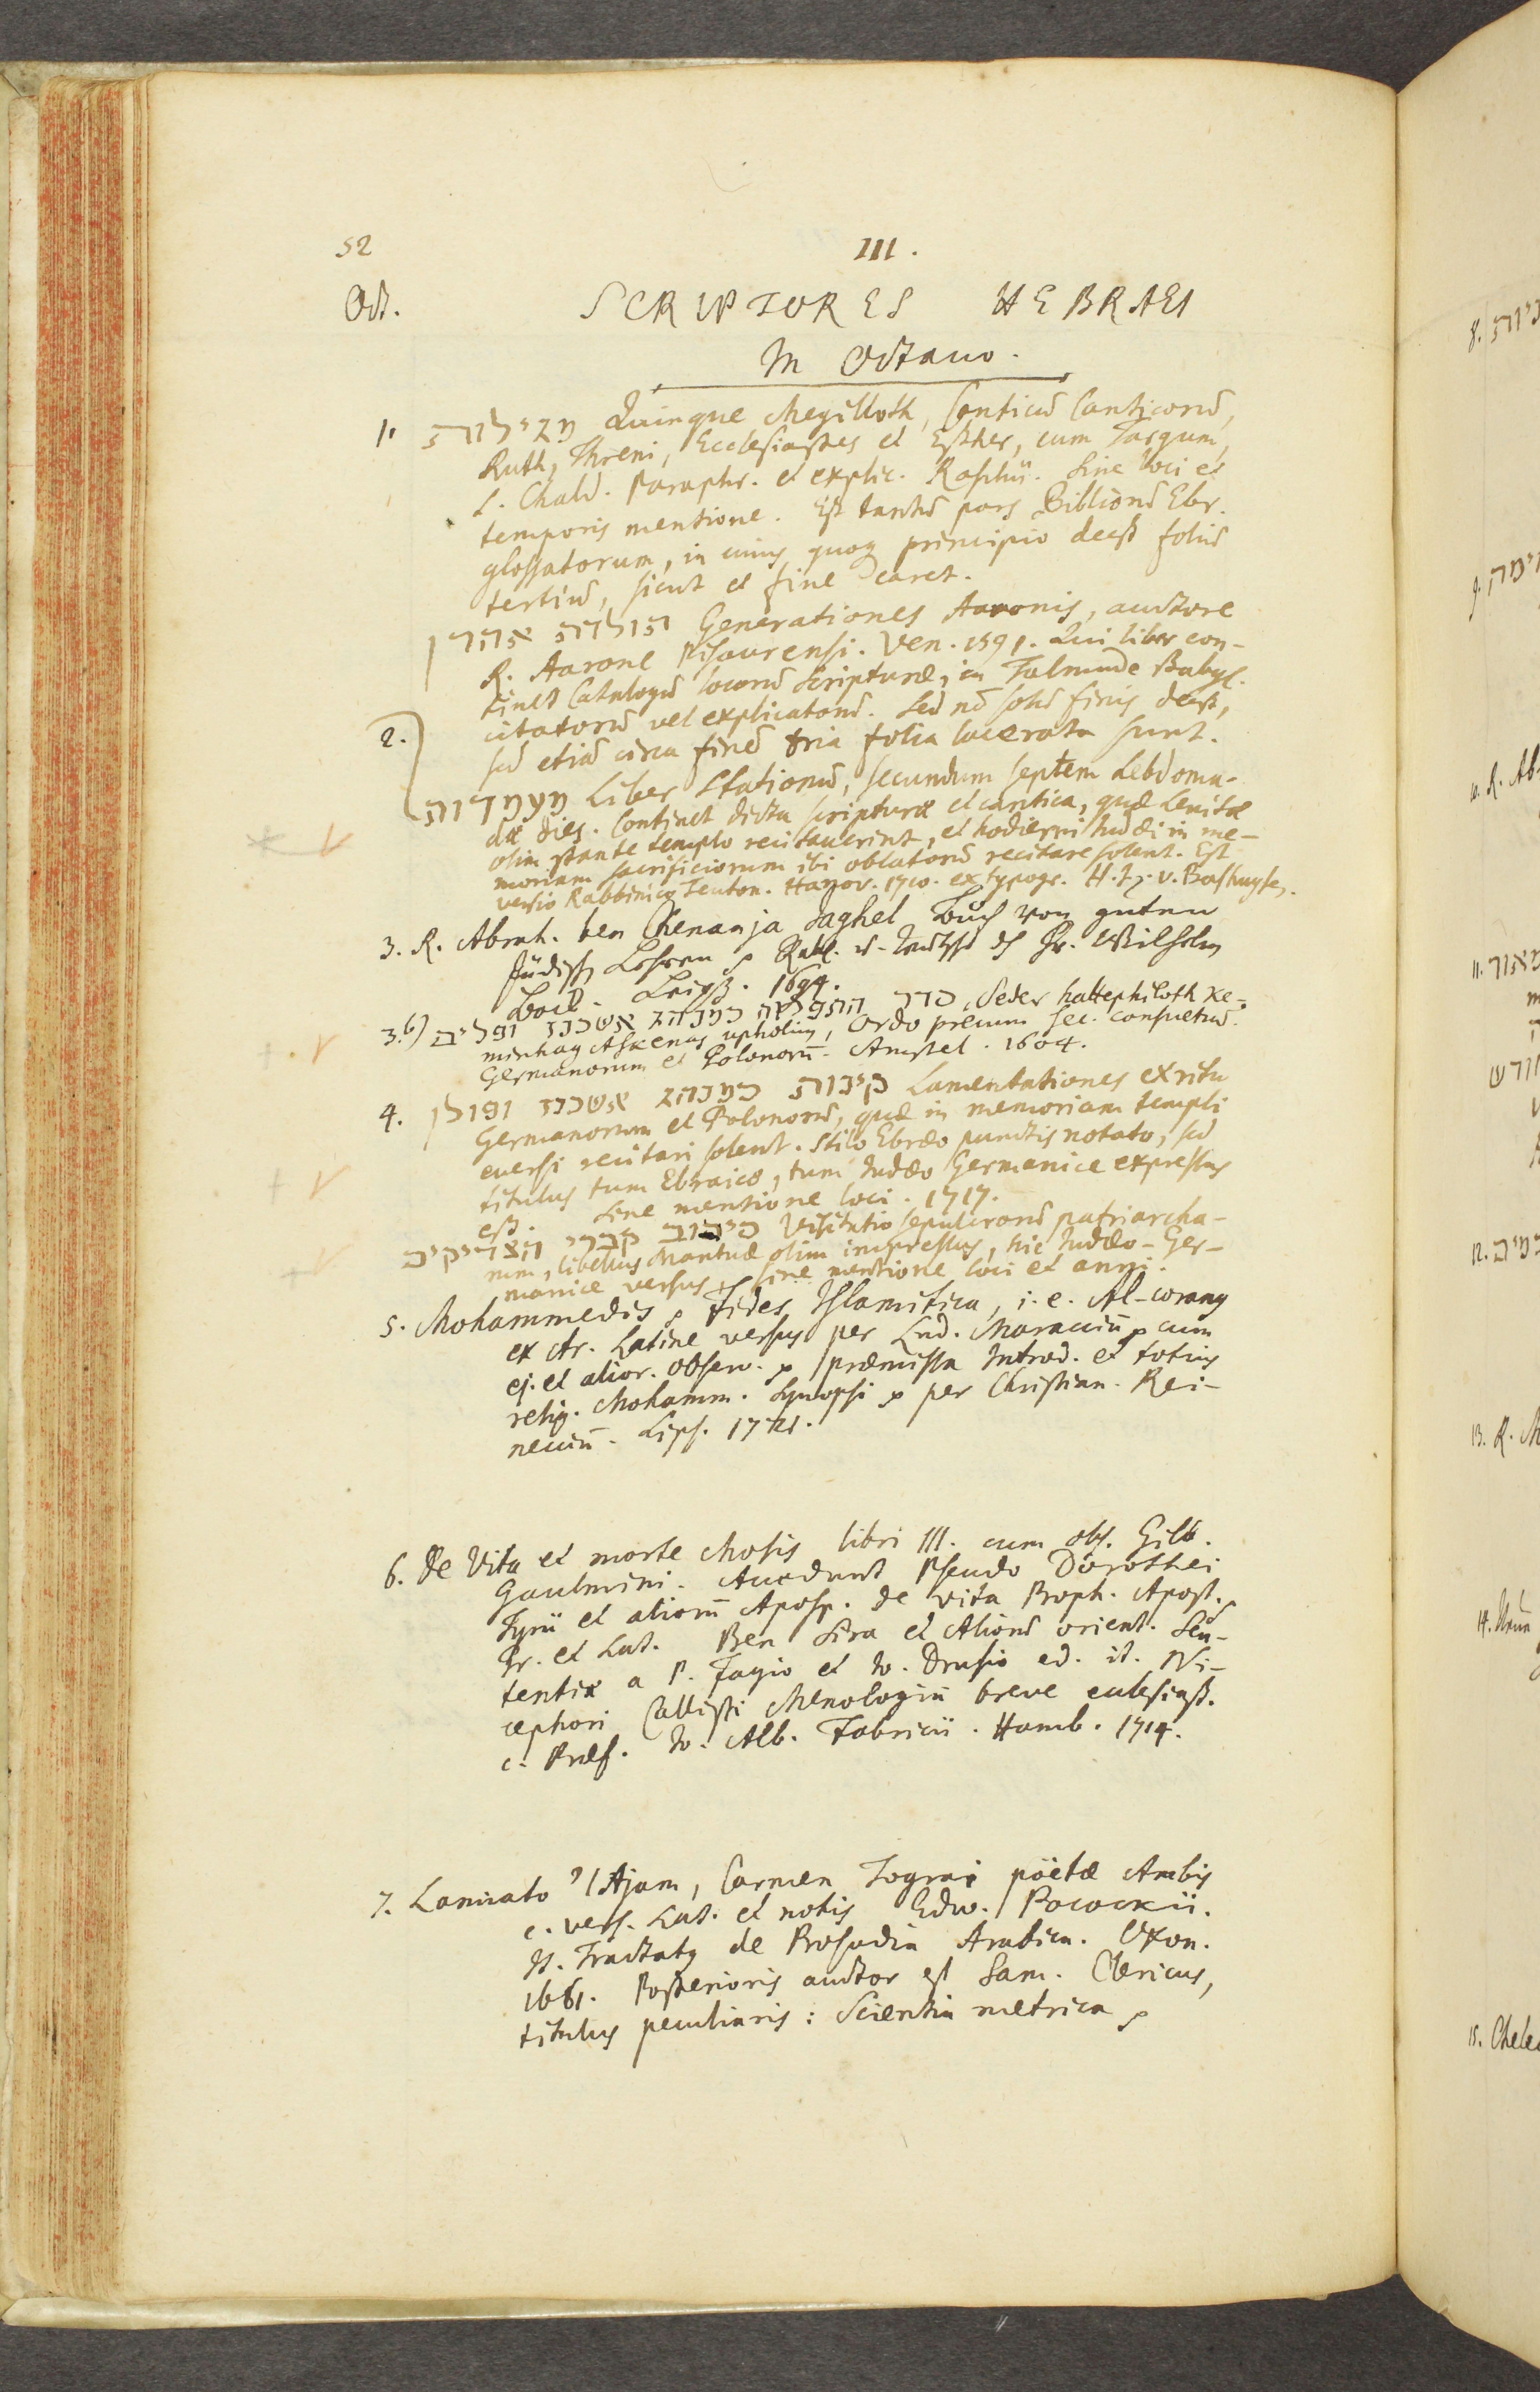 52
III.
Oct.
SCRIPTORES HEBRAEI
In Octavo.
1. מגילות Quinque Megilloth, Canticū Canticorū,
Ruth, Threni, Ecclesiastes et Esther, cum Targum,
s. Chald. Paraphr. et explic. Raschii. Sine loci et
temporis mentione. Est tantū pars Bibliorū Ebr.
glossatorum, in cuius quoq principio deest foliū
tertiū, sicut et fine caret.
תולדת אהרן Generationes Aaronis, auctore
R. Aarone Pisaurensi. Ven. 1591. Qui liber con-
tinet Catalogū locorū Scripturæ, in Talmude Babyl.
2. citatorū vel explicatorū. Sed nō solū finis deest,
sed etiā circa finē tria folia lacerata sunt.
מעמדות Liber Stationū, secundum septem hebdoma-
dæ dies. Continet dicta scripturæ et cantica, quæ Levitæ
olim stante templo recitaverint, et hodierni Judæi in me-
moriam sacrificiorum ibi oblatorū recitare solent. Est
versio Rabbinico Teuton. Hanov. 1710. ex typogr. H. J. v. Bashuysen.
3. R. Abrah. ben Chenanja Jaghel Buch von guten
Jüdisch Lehren Rabb. u. teutsch Fr. Wilhelm
Bock. Leipz. 1694.
3.b) סדר התפלות כמנהג אשכנז ופולים, Seder hattephiloth ke-
minhag Askenas upholim, Ordo precum sec. consuetud.
Germanorum et Polonorū. Amstel. 1604.
4. קינות כמנהג אשכנז ופולן Lamentationes ex ritu
Germanorum et Polonorū, quæ in memoriam templi
eversi recitari solent. Stilo Ebræo punctis notato, sed
titulus tum Ebraice, tum Judæo Germanice expressus
est. Sine mentione loci. 1717.
סיבוב קברי הצדיקים Visitatio sepulcrorū patriarcha-
rum, libellus Mantuæ olim impressus, hic Judæo-Ger-
manice versus, sine mentione loci et anni.
5. Mohammedis Fides Islamitica, i.e. Al-coranus
ex Ar. Latine versus per Lud. Maracciū cum
ej. et alior. observ. præmissa Introd. et totius
relig. Mohamm. Synopsi per Christian. Rei-
necciū. Lips. 1721.
6. De Vita et morte Mosis libri III. cum obs. Gilb.
Gaulmini. Accedunt Pseudo Dorothei
Tyrii et aliorū Aposp. de vita Proph. Apost.
Gr. et Lat. Ben Sira et Aliorū orient. Sen-
tentiæ a P. Fagio et Jo. Drusio ed. it. Ni-
cephori Callisti Menologiū breve ecclesiast.
c. Præf. Jo. Alb. Fabricii. Hamb. 1714.
7. Lamiato 'l Ajam, Carmen Tograi poëtæ Arabis
c. vers. Lat. et notis Edw. Pocockii.
It. Tractatus de Prosodia Arabica. Oxon.
1661. Posterioris auctor est Sam. Clericus,
titulus peculiaris: Scientia metrica